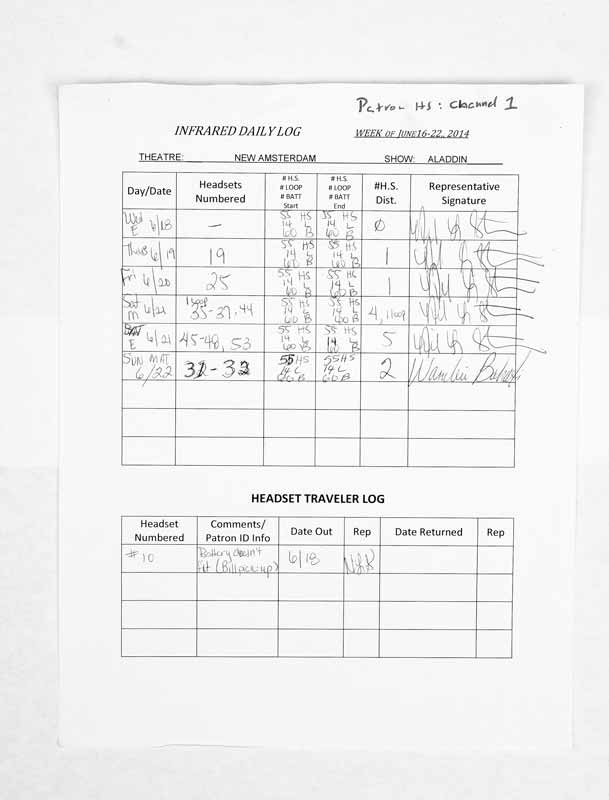 Patron HS: Channel 1
INFRARED DAILY LOG WEEK OF JUNE16-22, 2014
THEATRE: NEW AMSTERDAM SHOW: ALADDIN
Day/Date Headsets Numbered # H.S. # LOOP # BATT Start # H.S. # LOOP # BATT End #H.S. Dist. Representative Signature
Wed E 6/18 — 55 HS 14 L 60 B 55 HS 14 L 60 B Ø
Thurs 6/19 19 55 HS 14 L 60 B 55 HS 14 L 60 B 1
Fri 6/20 25 55 HS 14 L 60 B 55 HS 14 L 60 B 1
Sat M 6/21 1 loop 35-37, 44 55 HS 14 L 60 B 55 HS 14 L 60 B 4, 1 loop
E 6/21 45-48, 53 55 HS 14 L 60 B 55 HS 14 L 60 B 5
SUN MAT 6/22 32 - 33 55 HS 14 L 60 B 55 HS 14 L 60 B 2
HEADSET TRAVELER LOG
Headset Numbered Comments/ Patron ID Info Date Out Rep Date Returned Rep
#10 Battery doesn't fit (Bill pick up) 6/18 NYK